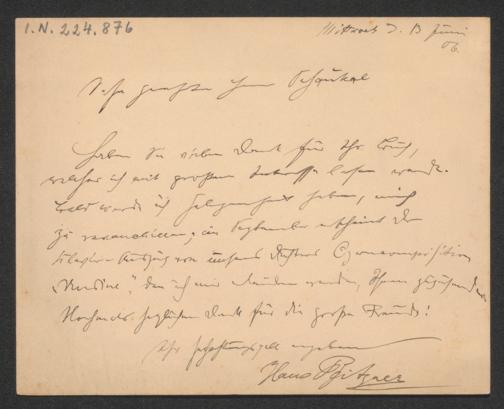 I.N. 224.876
Mittwoch d. 13 Juni
06.
Sehr geehrter Herr Schaukal
Haben Sie vielen Dank für Ihr Buch,
welches ich mit großem Interesse lesen werde.
Bald werde ich Gelegenheit haben, mich
zu revanchieren; im September erscheint der
Klavier-Auszug von
den ich mir erlauben werde, Ihnen
Nochmals herzlichen Dank für die große Freude!
Ihr ergebener
Hans Pfitzner